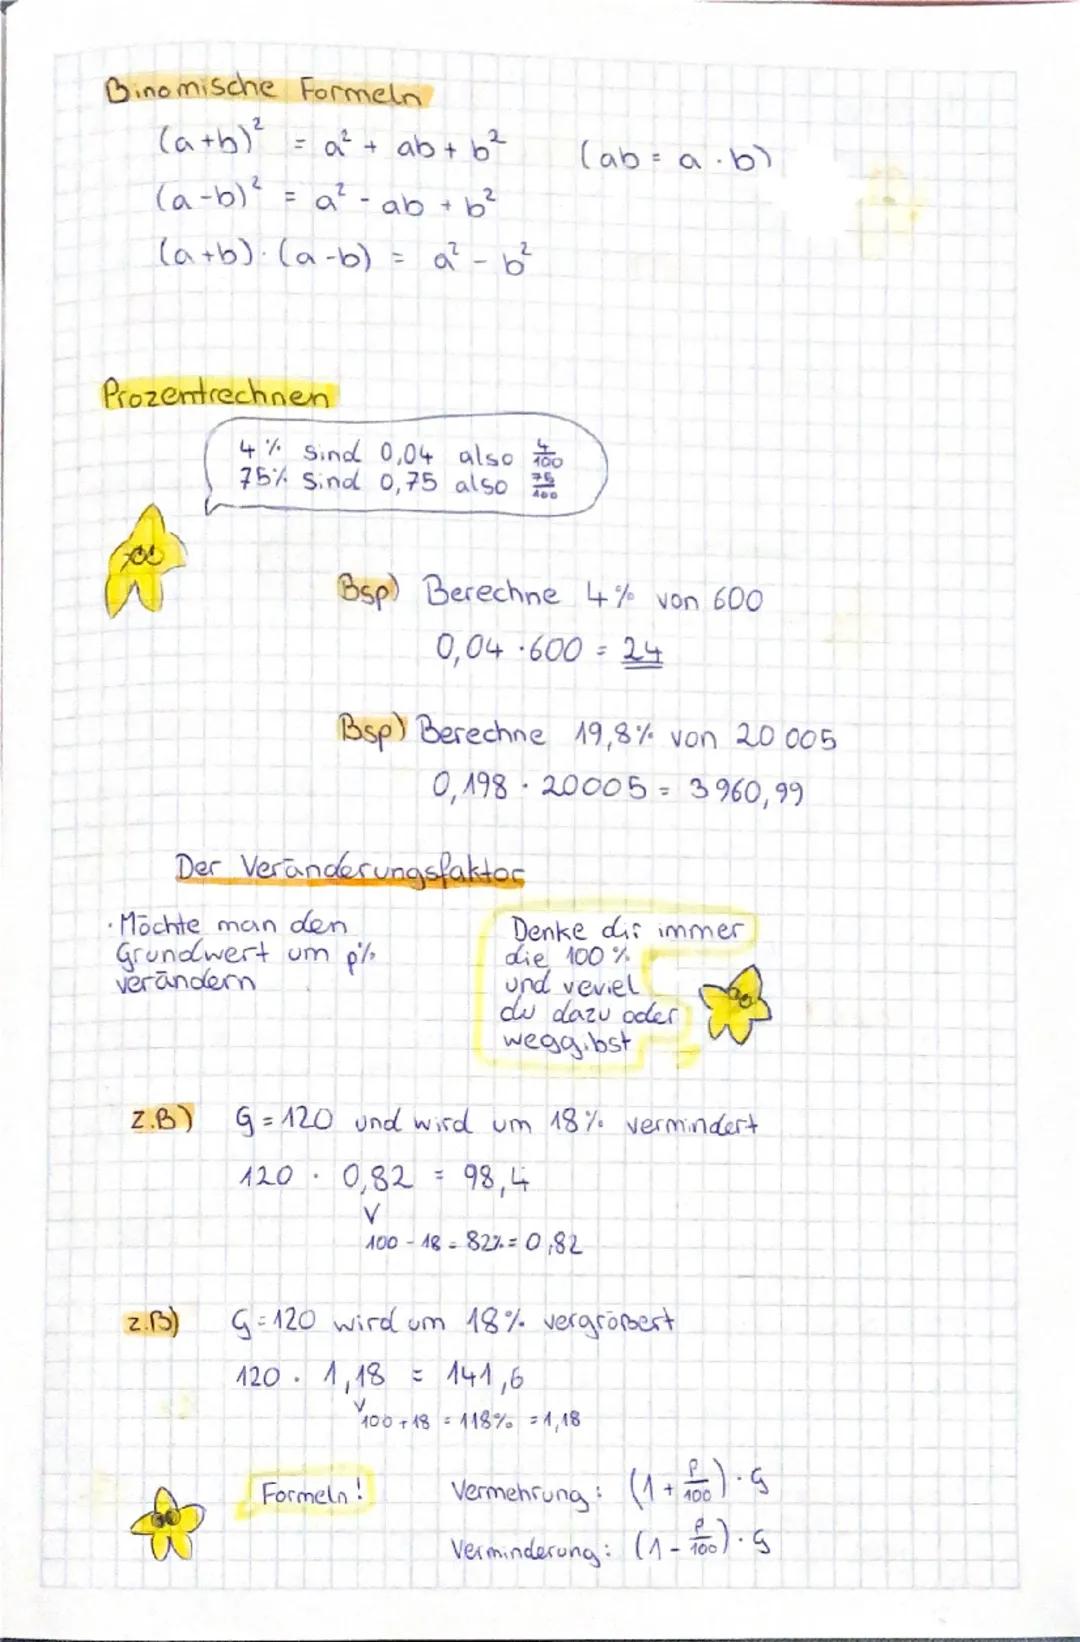 Binomische Formeln
(a+b)² = a² + ab + b² (ab = a · b)
(a-b)² = a² - ab + b²
(a+b) · (a-b) = a² - b²
Prozentrechnen
4% sind 0,04 also 4/100
75% sind 0,75 also 75/100
Bsp) Berechne 4% von 600
0,04 · 600 = 24
Bsp) Berechne 19,8% von 20 005
0,198 · 20005 = 3960,99
Der Veränderungsfaktor
· Möchte man den
Grundwert um p%
verändern
Denke dir immer
die 100 %
und veviel
du dazu oder
weggibst
z.B) G = 120 und wird um 18% vermindert
120 · 0,82 = 98,4
100 - 18 = 82% = 0,82
z.B) G = 120 wird um 18% vergrößert
120 · 1,18 = 141,6
100 + 18 = 118% = 1,18
Formeln! Vermehrung: (1 + p/100) · G
Verminderung: (1 - p/100) · G